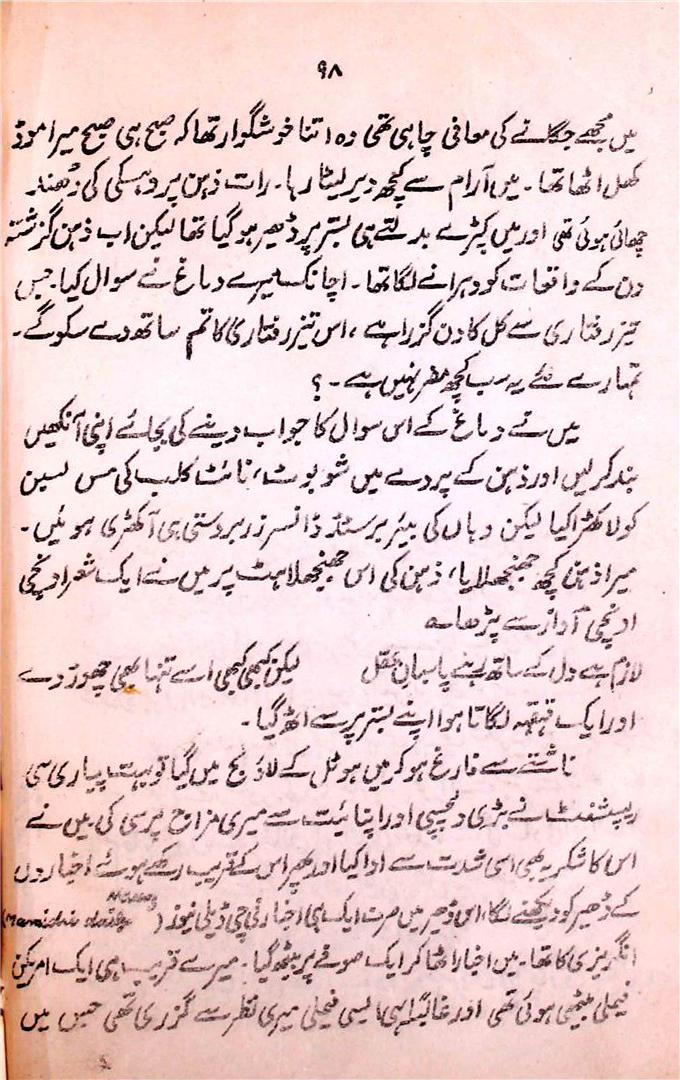 ۹۸
میں مجھے جگانے کی معافی چاہی تھی وہ اتنا خوشگوار تھا کہ صبح ہی صبح میرا موڈ
کھل اٹھا تھا۔ میں آرام سے کچھ دیر لیٹا رہا۔ رات ذہن پر وہسکی کی دُھند
چھائی ہوئی تھی اور میں کپڑے بدلتے ہی بستر پر ڈھیر ہو گیا تھا لیکن اب ذہن گزشتہ
دن کے واقعات کو دہرانے لگا تھا۔ اچانک میرے دماغ نے سوال کیا۔ جس
تیز رفتاری سے کل کا دن گزرا ہے، اس تیز رفتاری کا تم ساتھ دے سکو گے۔
تمہارے لئے یہ سب کچھ مضر نہیں ہے۔؟
میں نے دماغ کے اس سوال کا جواب دینے کی بجائے اپنی آنکھیں
بند کر لیں اور ذہن کے پردے میں شو بوٹ، نائٹ کلب کی مس لسین
کو لا کھڑا کیا لیکن وہاں کی بیئر برسٹڈ ڈانسرز زبردستی ہی آ کھڑی ہوئیں۔
میرا ذہن کچھ جھنجھلایا، ذہن کی اس جھنجھلاہٹ پر میں نے ایک شعر اونچی
اونچی آواز سے پڑھا ؎
لازم ہے دل کے ساتھ رہے پاسبانِ عقل لیکن کبھی کبھی اسے تنہا بھی چھوڑ دے
اور ایک قہقہہ لگاتا ہوا اپنے بستر پر سے اٹھ گیا۔
ناشتے سے فارغ ہو کر میں ہوٹل کے لاؤنج میں گیا تو بہت پیاری سی
ریپشنسٹ نے بڑی دلچسپی اور اپنائیت سے میری مزاج پرسی کی۔ میں نے
اس کا شکریہ بھی اسی شدت سے ادا کیا اور پھر اس کے قریب رکھے ہوئے اخباروں
کے ڈھیر کو دیکھنے لگا، اس ڈھیر میں صرف ایک ہی اخبار ڈیلی نیوز (Mainichi daily
انگریزی کا تھا۔ میں اخبار اٹھا کر ایک صوفے پر بیٹھ گیا۔ میرے قریب ہی ایک امریکن
فیملی بیٹھی ہوئی تھی اور غالباً ایسی فیملی میری نظر سے گزری تھی جس میں